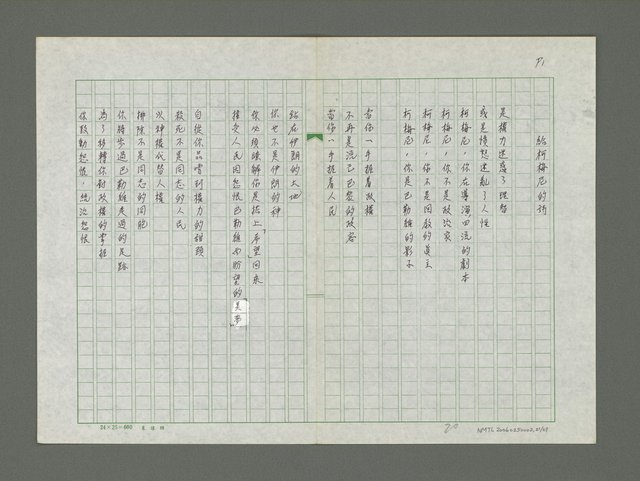 P1
給柯梅尼的詩
是權力迷惑了理智
或是憤怒迷亂了人性
柯梅尼，你在導演四流的劇本
柯梅尼，你不是政治家
柯梅尼，你不是回教的真主
柯梅尼，你是巴勒維的影子
當你一手握着政權
不再是流亡巴黎的政客
當你一手握着人民
站在伊朗的大地
你也不是伊朗的神
你必須瞭解你是搭上「希望」回來
接受人民因怨恨巴勒維而盼望的「美夢」
自從你品嚐到權力的甜頭
殺死不是同志的人民
以神權代替人權
排除不是同志的同胞
你將步過巴勒維走過的足跡
為了移轉你對政權的掌握
你鼓動怨恨，統治怨恨
24×25=600
20
NMTL 20060250002